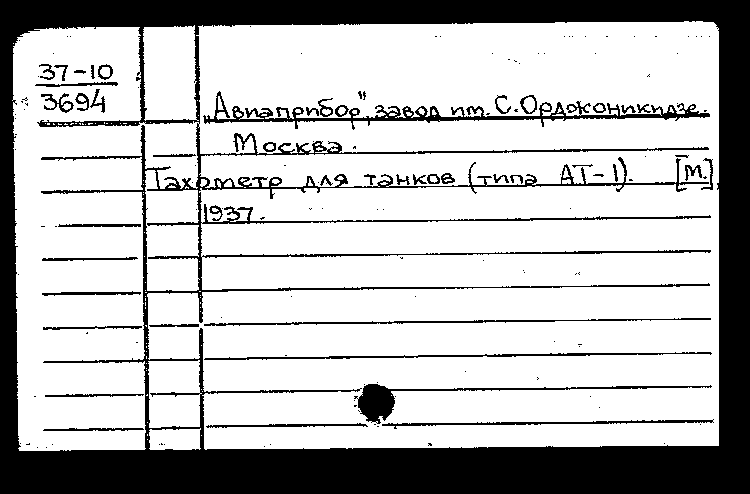 37-10
3694
„Авиаприбор", завод им. С. Орджоникидзе.
Москва.
Тахометр для танков (типа АТ-1). [М.],
1937.